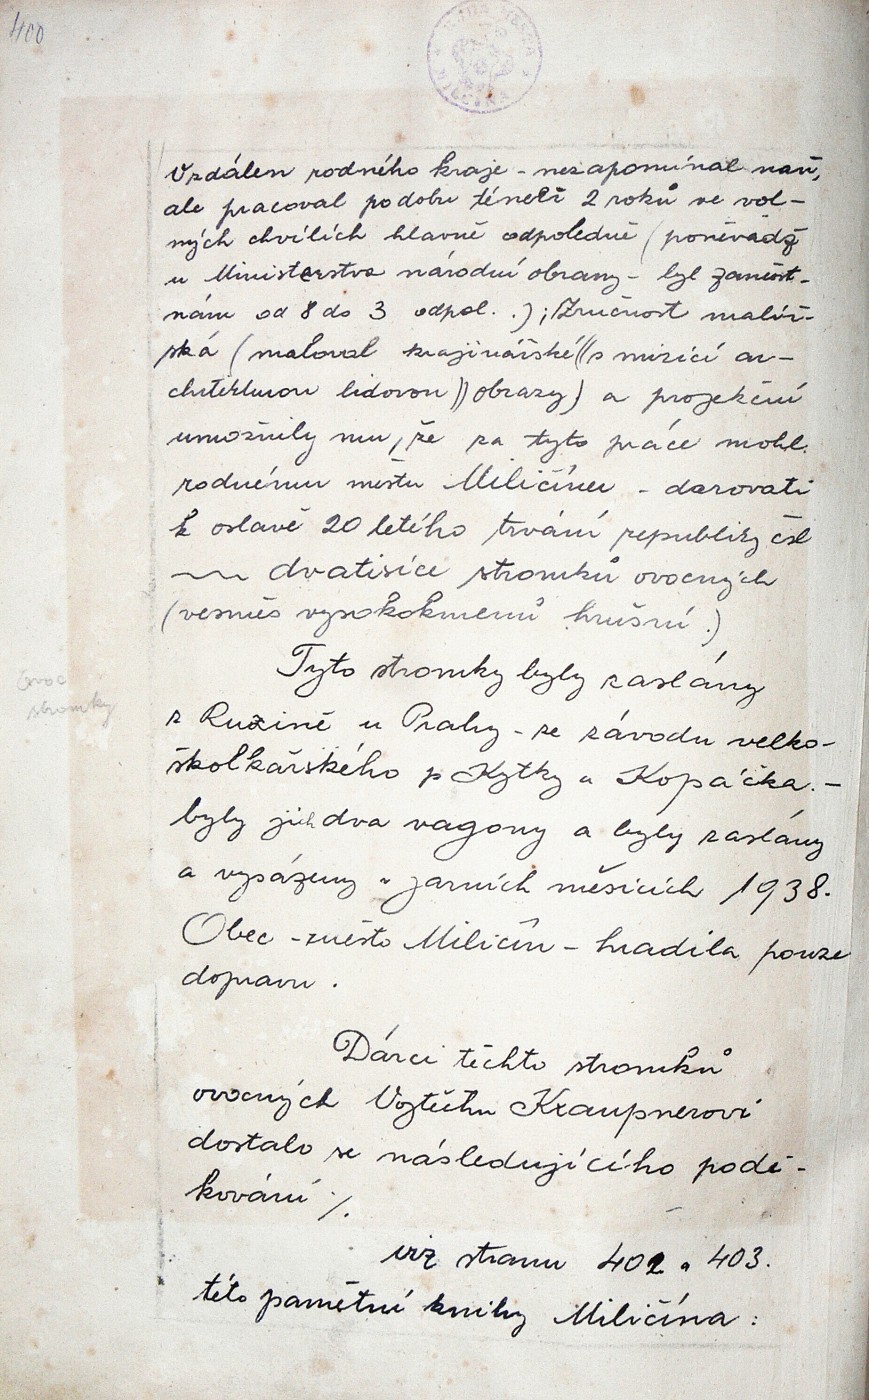 400
RADA MĚSTA
MILČÍNA
Vzdálen rodného kraje - nezapomínal naň,
ale pracoval po dobu téměři 2 roků ve vol-
ných chvílích hlavně odpoledne (poněvádž
u Ministerstva národní obrany - byl zaměst-
nám od 8 do 3 odpol. .); Zručnost malíř-
ská (maloval krajinářské ((s mizící ar-
chitekturou lidovou)) obrazy) a projekční
umožnily mu, že za tyto práce mohl
rodnému městu Miličínu - darovati
k oslavě 20 letého trvání republiky čsl
dvatisíce stromků ovocných
(vesměs vysokokmenů hrušní.)
Tyto stromky byly zaslány
Ovoc
stromky
z Ruzině u Prahy - ze závodu velko-
školkařského p Kytky a Kopáčka. -
byly jich dva vagony a byly zaslány
a vysázeny v jarních měsicích 1938.
Obec - město Miličín - hradila pouze
dopravu .
Dárci těchto stromků
ovocných Vojtěchu Kraupnerovi
dostalo se následujícího podě-
kování ./.
viz stranu 402 a 403.
této pamětní knihy Miličína :